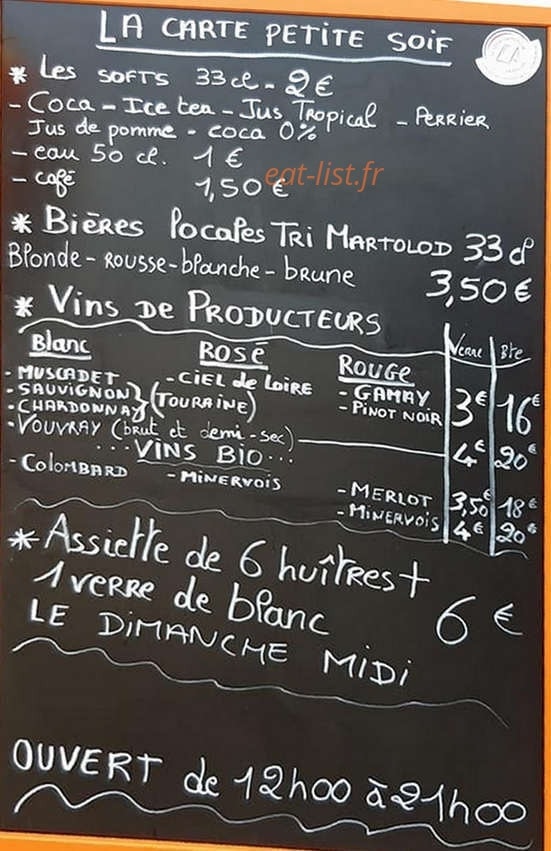 LA CARTE PETITE SOIF
* Les SOFTS 33cl - 2€
- Coca - Ice tea - Jus Tropical - PERRIER
Jus de pomme - coca 0%
- eau 50 cl. 1 €
- café 1,50 €
eat-list.fr
* Bières locales TRI MARTOLOD 33 cl
Blonde - Rousse - blanche - brune 3,50 €
* Vins DE PRODUCTEURS
Blanc ROSÉ ROUGE Verre Bte
- MUSCADET - CIEL de LOIRE - GAMAY
- SAUVIGNON (TOURAINE) - PINOT NOIR 3€ 16€
- CHARDONNAY
- VOUVRAY (brut et demi-sec) 4€ 20€
... VINS BIO...
- COLOMBARD - MINERVOIS - MERLOT 3,50€ 18€
- MINERVOIS 4€ 20€
* Assiette de 6 huîtres +
1 verre de blanc 6 €
LE DIMANCHE MIDI
OUVERT de 12h00 à 21h00